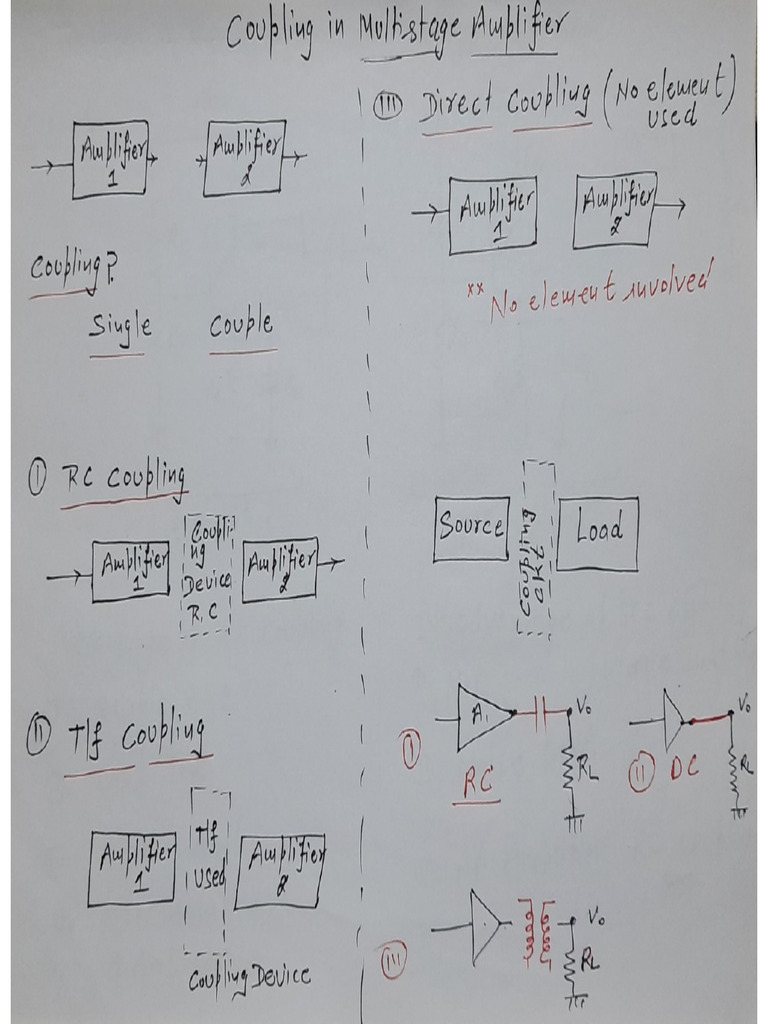 Coupling in Multistage Amplifier
Amplifier
1
Amplifier
2
Coupling?
Single Couple
I RC Coupling
Amplifier
1
Coupli
ng
Device
R.C
Amplifier
2
II T/f Coupling
Amplifier
1
T/f
used
Amplifier
2
Coupling Device
III Direct Coupling (No element
used)
Amplifier
1
Amplifier
2
** No element involved
Source
Coupling
CKT
Load
I
A1
Vo
RL
RC
II
DC
Vo
RL
III
Vo
RL